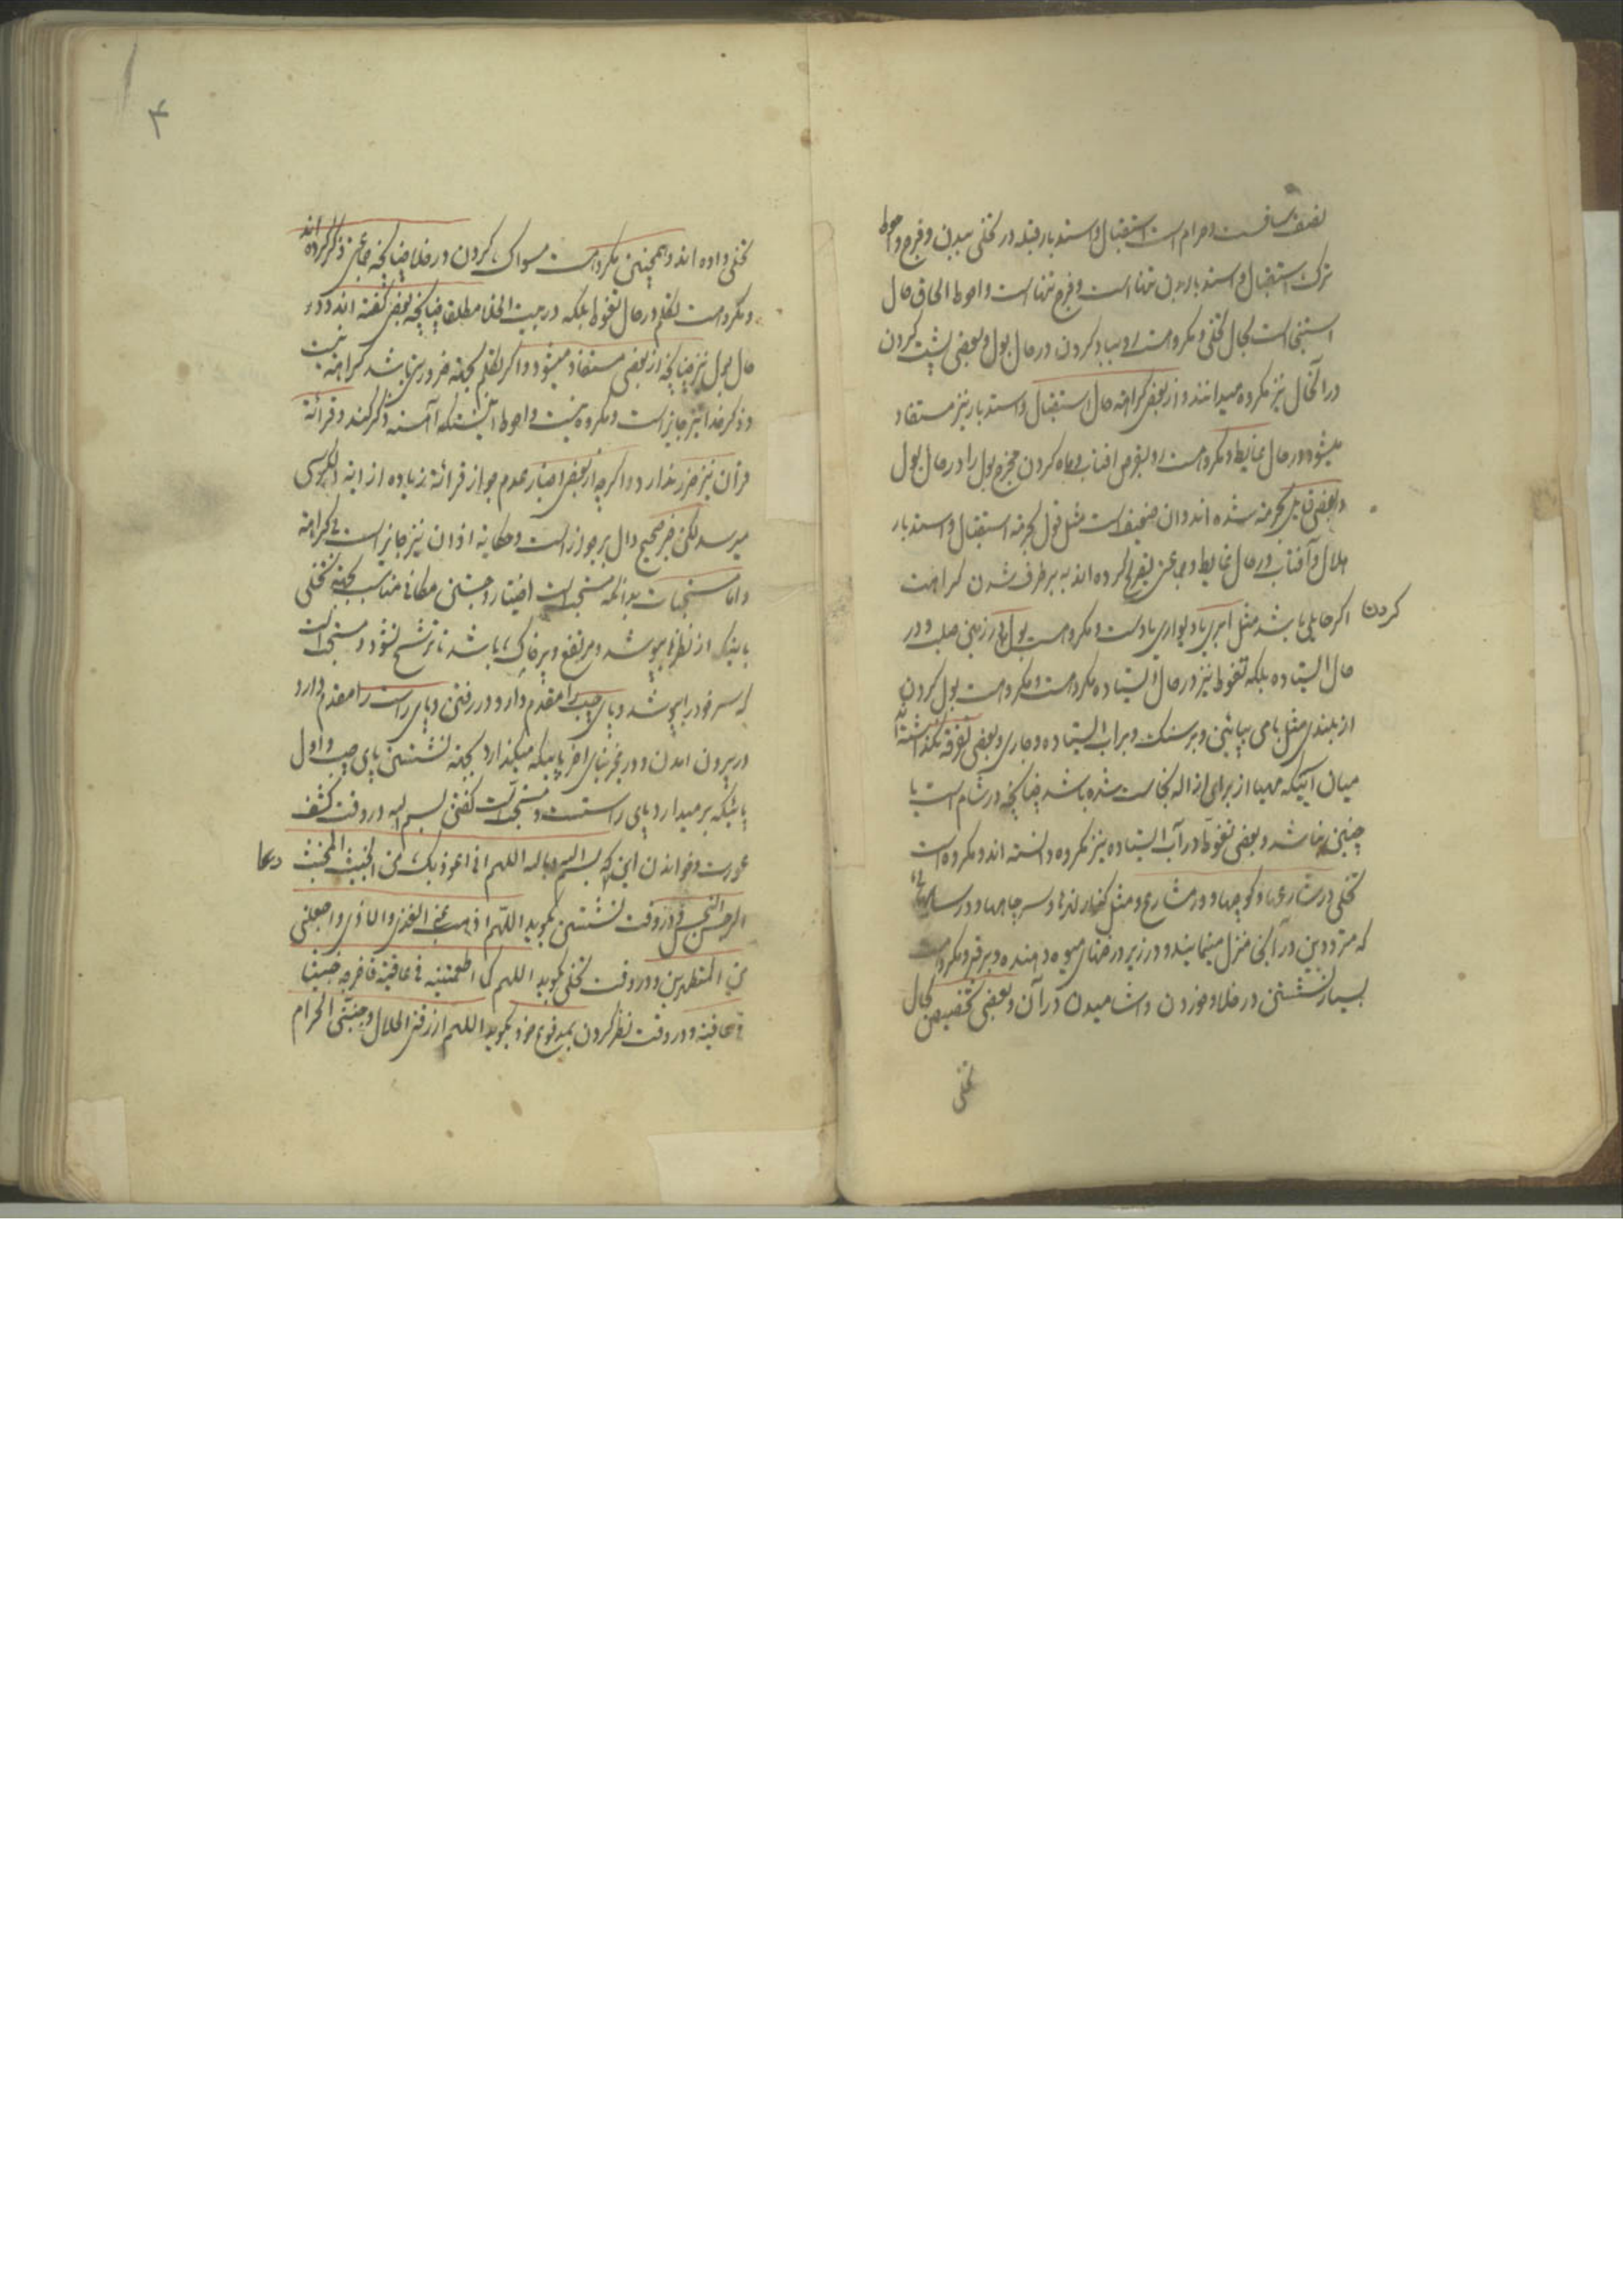 نصف ساقست و حرام است استقبال و استدبار قبله در تخلی ببدن و فرج و احوط
ترک استقبال و استدبار ببدن تنها است و فرج تنها است و احوط الحاق حال
استنجا است بحال تخلی و مکروهست رو بباد کردن در حال بول و بعضی پشت کردن
در آنحال نیز مکروه میدانند و از بعضی کراهة حال استقبال و استدبار نیز مستفاد
میشود در حال غایط و مکروهست رو بقرص افتاب و ماه کردن مخرج بول را در حال بول
و بعضی قایل بحرمة شده اند و ان ضعیف است مثل قول بحرمة استقبال و استدبار
هلال و آفتاب در حال غایط و جماعتی تصریح کرده اند به برطرف شدن کراهت
کردن
اکر حایلی باشد مثل ابری یا دیواری یا دست و مکروهست بول در زمین صلب و در
حال ایستاده بلکه تغوط نیز در حال ایستاده مکروهست و مکروهست بول کردن
از بلندی مثل بامی بپائین و بر سنک و در آب ایستاده و جاری و بعضی تفرقه گذاشته اند
میان آبیکه مهیا از برای ازاله نجاست شده باشد چنانچه در شام است یا
چنین نباشد و بعضی تغوط در آب ایستاده نیز مکروه دانسته اند و مکروه است
تخلی در شارعها و کوچها و در مشارع و مثل کنار نهرها و سر چاهها و در
که مترددین در آنجا منزل مینمایند و در زیر درختهای میوه دهنده و بر قبر و مکروهست
بسیار نشستن در خلا و خوردن و اشامیدن در آن و بعضی تخصیص بحال
تخلی
۴
تخلی داده اند و همچنین مکروهست مسواک کردن در خلا چنانچه جماعتی ذکر کرده اند
و مکروهست تکلم در حال تغوط بلکه در بیت الخلا مطلقا چنانچه بعضی گفته اند و در
حال بول نیز چنانچه از بعضی مستفاد میشود و اگر تکلم بجهة ضرورتی باشد کراهة نیست
و ذکر خدا نیز جایز است و مکروه نیست و احوط آنستکه آهسته ذکر کند و قرائة
قرآن نیز ضرر ندارد و اگرچه از بعضی اخبار عدم جواز قرائة زیاده از ایة الکرسی
میرسد لکن خبر صحیح دال بر جواز است و حکایة اذان نیز جایز است بی کراهة
و اما مستحبات بدانکه مستحب است اختیار و جستن مکانی مناسب بجهة تخلی
باینکه از نظرها پوشیده و مرتفع و پر خاک باشد تا ترشح نشود و مستحب است
که سر خود را بپوشد و پای چپ را مقدم دارد در رفتن و پای راست را مقدم دارد
در بیرون امدن و در صحرا بنای اخر پائیکه میگذارد بجهة نشستن پای چپ و اول
پائیکه بر میدارد پای راستست و مستحب است گفتن بسم الله در وقت کشف
عورت و خواندن این که بسم الله و بالله اللهم انی اعوذ بک من الخبیث المخبث
دعا
الرجس النجس و در وقت نشستن بگوید اللهم اذهب عنی القذی و الاذی و اجعلنی
من المتطهرین و در وقت تخلی بگوید اللهم کما اطعمتنیه فی عافیة فاخرجه خبیثا
فی عافیة و در وقت نظر کردن بمدفوع خود بگوید اللهم ارزقنی الحلال و جنبنی الحرام